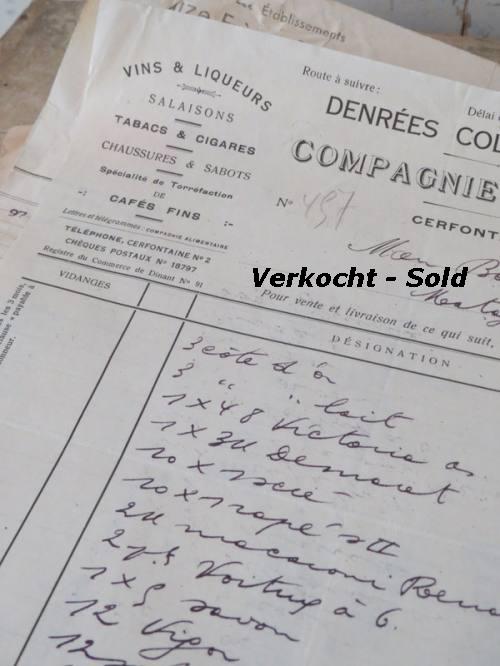 Établissements
VINS & LIQUEURS
SALAISONS
TABACS & CIGARES
CHAUSSURES & SABOTS
Spécialité de Torréfaction
DE
-:- CAFÉS FINS -:-
Lettres et télégrammes: COMPAGNIE ALIMENTAIRE
TÉLÉPHONE, CERFONTAINE N° 2
CHÈQUES POSTAUX N° 18797
Registre du Commerce de Dinant N° 91
Route à suivre:
Délai
DENRÉES COL
COMPAGNIE
N° 497
CERFONT
Verkocht - Sold
Pour vente et livraison de ce qui suit,
VIDANGES
DÉSIGNATION
3 côte d'or
3 " " lait
1 x 48 Victoria
1 x 3K Demaret
10 x
10 x rapé
2K macaroni
Vortux à 6.
1 x 5 savon
12 Vigor
12
les 3 mois,
payable à